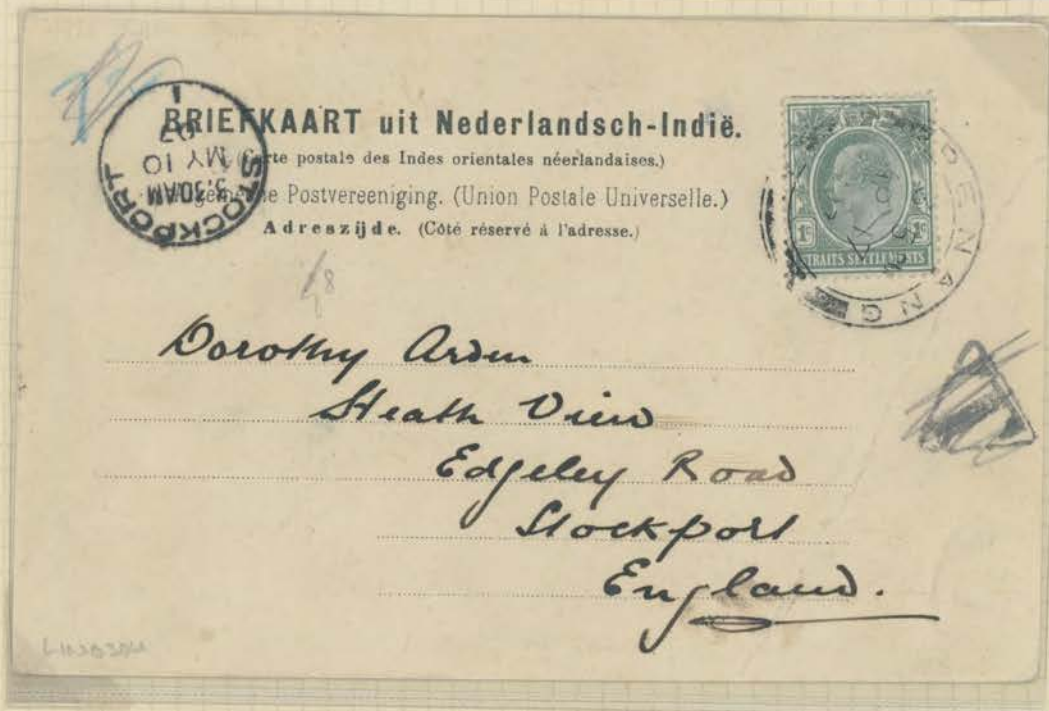 BRIEFKAART uit Nederlandsch-Indië.
(Carte postale des Indes orientales néerlandaises.)
Postvereeniging. (Union Postale Universelle.)
Adreszijde. (Côté réservé à l'adresse.)
STOCKPORT
5.30AM
MY 10
07
1
PENANG
1c 1c
STRAITS SETTLEMENTS
Dorothy Arden
Heath View
Edgeley Road
Stockport
England.